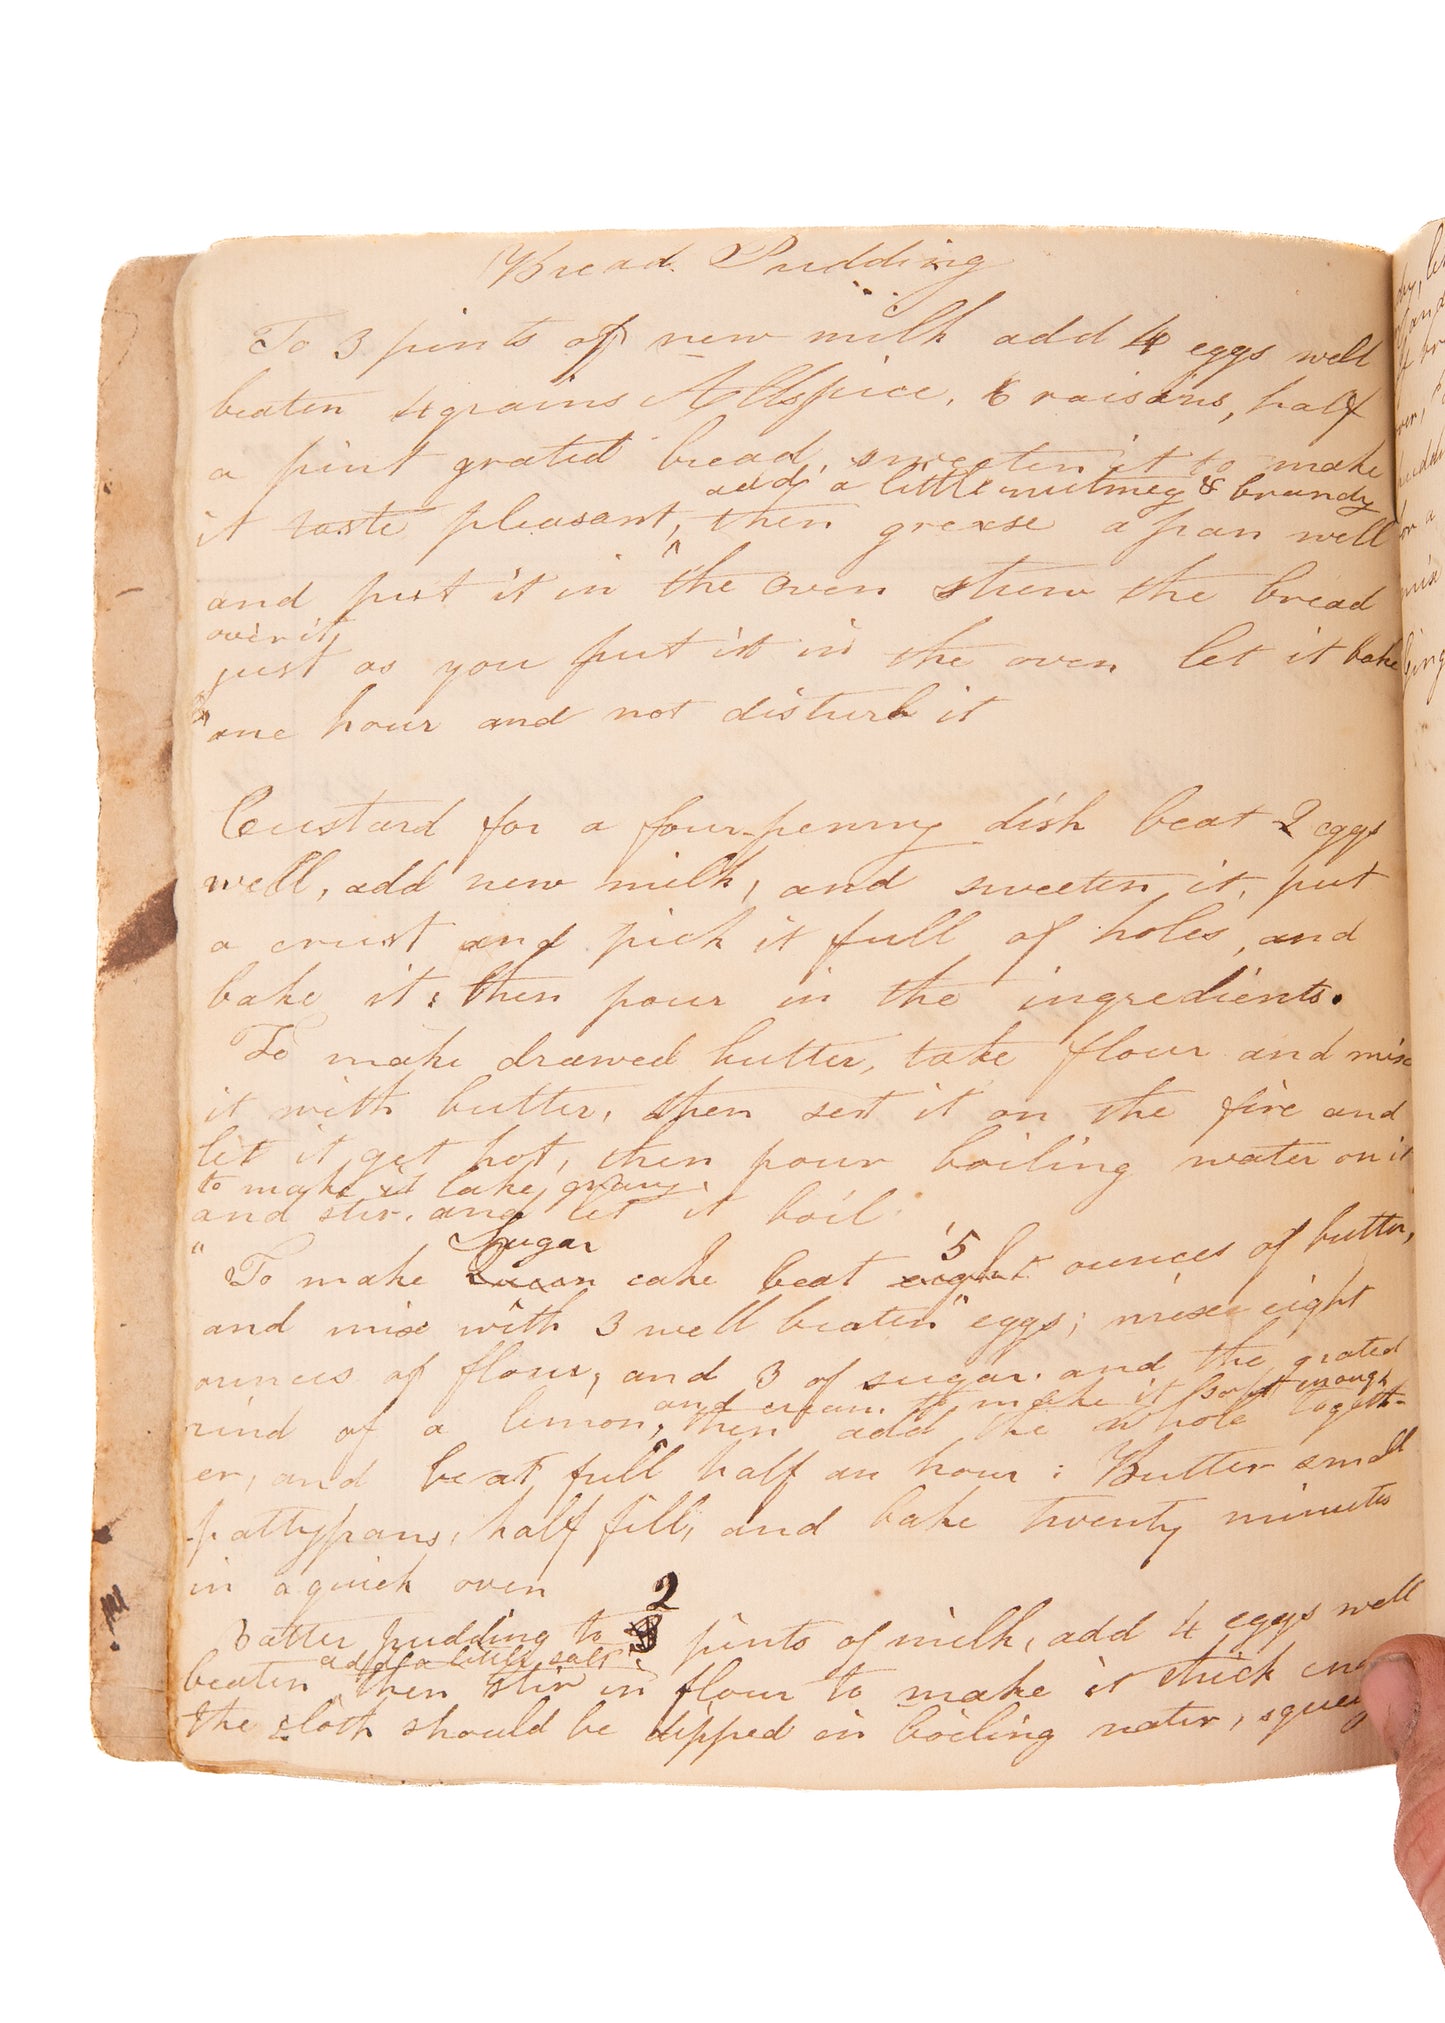 Bread Pudding
To 3 pints of new milk add 4 eggs well
beaten 4 grains Allspice, 6 raisins, half
a pint grated bread, sweeten it to make
add a little nutmeg & brandy
it taste pleasant, then grease a pan well
^
and put it in the oven strew the bread
over it
just as you put it in the oven let it bake
one hour and not disturb it
Custard for a four-penny dish beat 2 eggs
well, add new milk, and sweeten it, put
a crust and pick it full of holes, and
bake it; then pour in the ingredients.
To make drawed butter, take flour and mix
it with butter, then set it on the fire and
let it get hot, then pour boiling water on it
to make it lake gravy.
and stir, and let it boil
Sugar 5
" To make Queen cake beat eight ounces of butter,
and mix with 3 well beaten eggs; mix eight
ounces of flour, and 3 of sugar. and the grated
and cream to make it soft enough
rind of a lemon, then add the whole togeth-
er, and beat full half an hour: Butter small
pattypans, half fill, and bake twenty minutes
in a quick oven
2
Batter pudding to 3 pints of milk, add 4 eggs well
add a little salt
beaten then stir in flour to make it thick
the cloth should be dipped in boiling water,